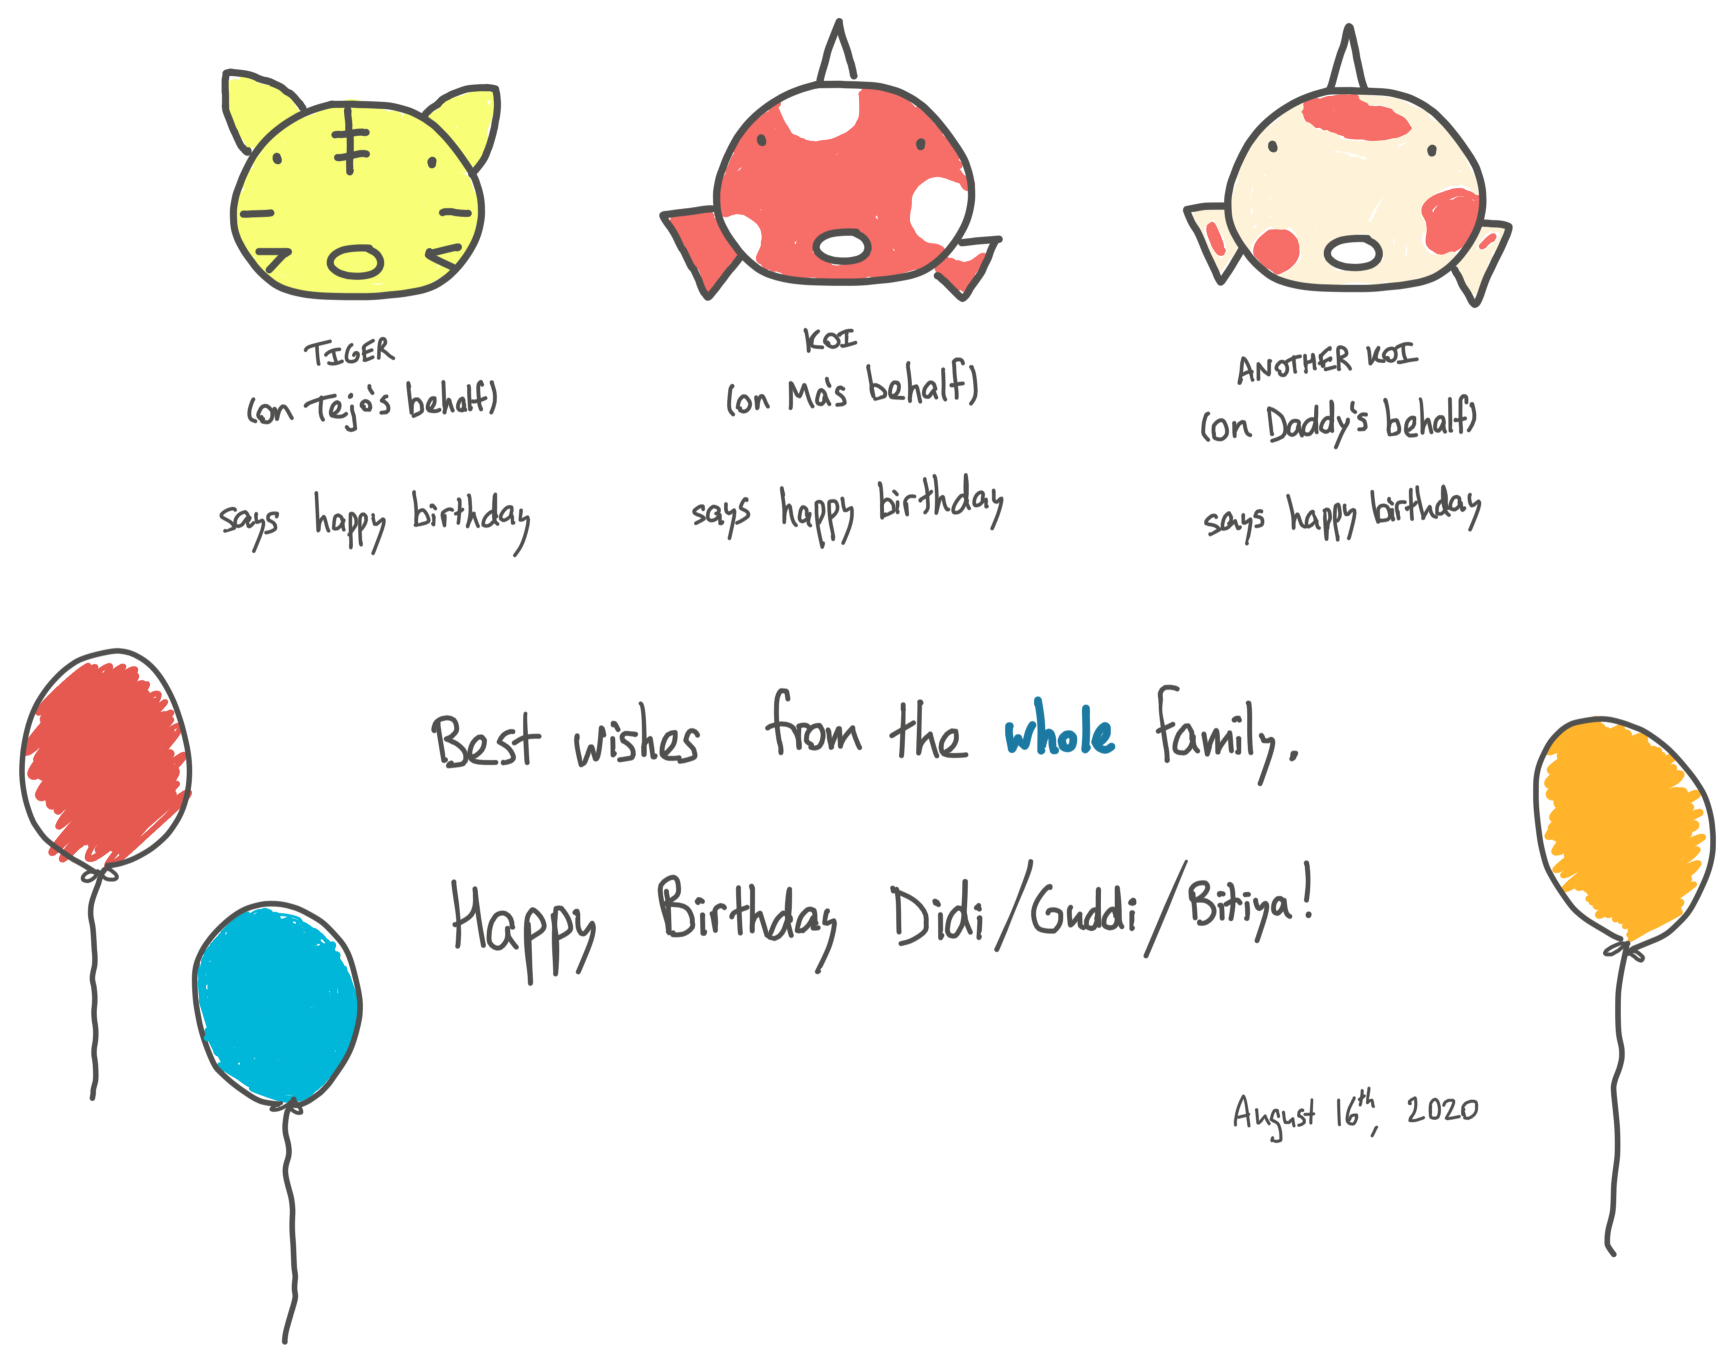 TIGER
(on Tejo's behalf)
says happy birthday
KOI
(on Ma's behalf)
says happy birthday
ANOTHER KOI
(on Daddy's behalf)
says happy birthday
Best wishes from the whole family.
Happy Birthday Didi/Guddi/Bitiya!
August 16th, 2020